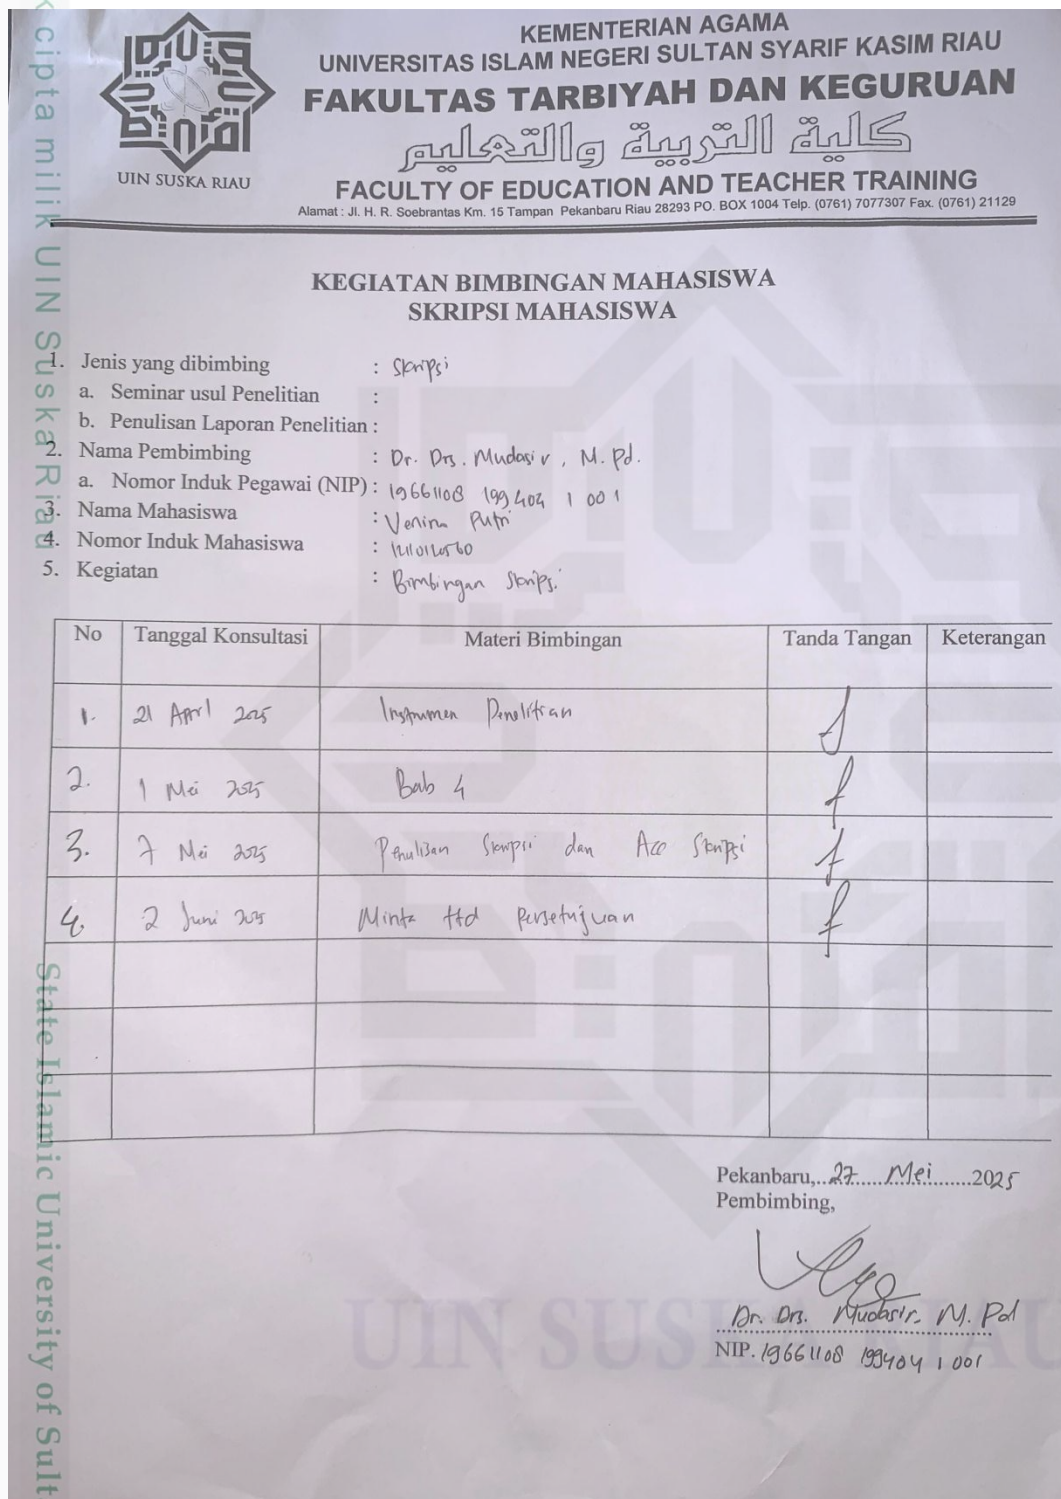 k cipta milik UIN Suska Riau
State Islamic University of Sult
UIN SUSKA RIAU
KEMENTERIAN AGAMA
UNIVERSITAS ISLAM NEGERI SULTAN SYARIF KASIM RIAU
FAKULTAS TARBIYAH DAN KEGURUAN
كلية التربية والتعليم
FACULTY OF EDUCATION AND TEACHER TRAINING
Alamat : Jl. H. R. Soebrantas Km. 15 Tampan Pekanbaru Riau 28293 PO. BOX 1004 Telp. (0761) 7077307 Fax. (0761) 21129
KEGIATAN BIMBINGAN MAHASISWA
SKRIPSI MAHASISWA
1. Jenis yang dibimbing : Skripsi
a. Seminar usul Penelitian :
b. Penulisan Laporan Penelitian :
2. Nama Pembimbing : Dr. Drs. Mudasir, M. Pd.
a. Nomor Induk Pegawai (NIP) : 19661108 199404 1 001
3. Nama Mahasiswa : Putri
4. Nomor Induk Mahasiswa :
5. Kegiatan : Bimbingan Skripsi
No Tanggal Konsultasi Materi Bimbingan Tanda Tangan Keterangan
1. 21 April 2025 Instrumen Penelitian
2. 1 Mei 2025 Bab 4
3. 7 Mei 2025 Penulisan Skripsi dan Acc Skripsi
4. 2 Juni 2025 Minta ttd Persetujuan
Pekanbaru,..27.....Mei.......2025
Pembimbing,
Dr. Drs. Mudasir. M. Pd
NIP. 19661108 199404 1 001
UIN SUSKA RIAU